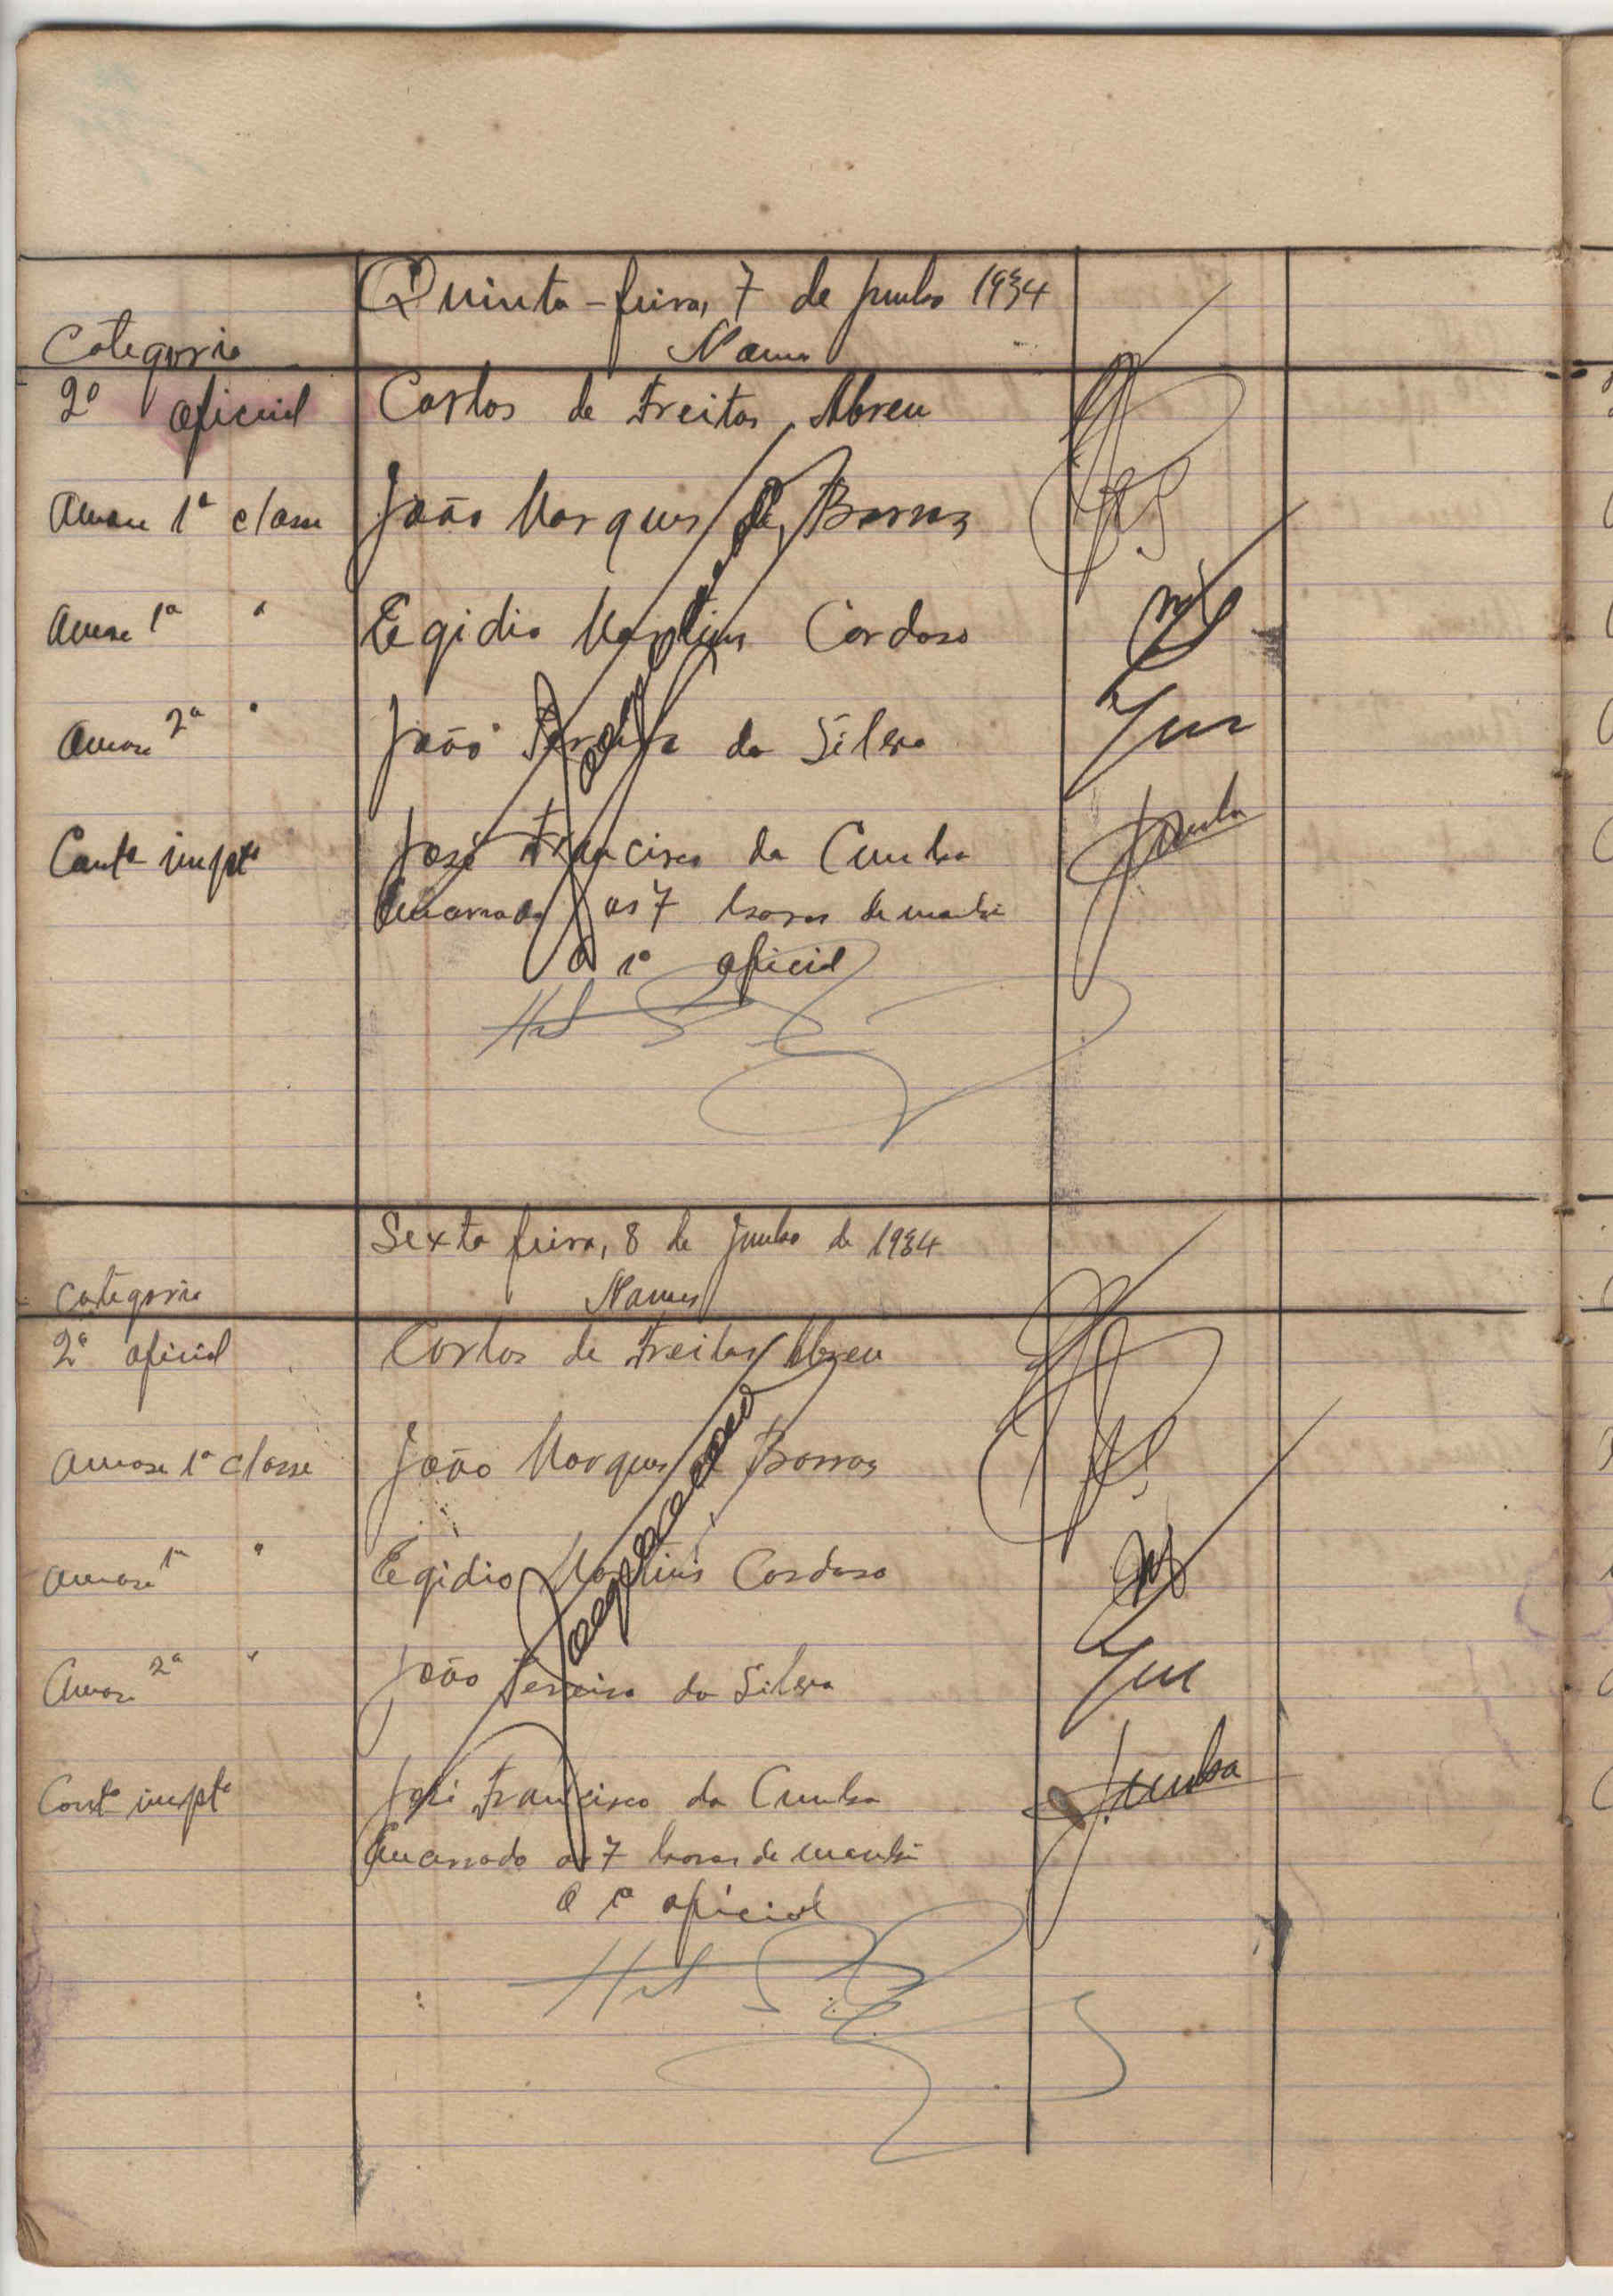 Quinta-feira, 7 de Junho 1934
Categoria Nome
2º oficial Carlos de Freitas Abreu
Aman 1ª classe João Marques de Barros
Aman 1ª " Egidio Martins Cardoso
Aman 2ª " João Ferreira da Silva
Contº impte José Francisco da Cunha Cunha
Encerrado as 7 horas da manhã
O 1º oficial
Sexta feira, 8 de Junho de 1934
Categoria Nomes
2º oficial Carlos de Freitas Abreu
Aman 1ª classe João Marques Barros
Aman 1ª " Egidio Martins Cardoso
Aman 2ª " João Ferreira da Silva
Contº impte José Francisco da Cunha Cunha
Encerrado as 7 horas da manhã
O 1º oficial